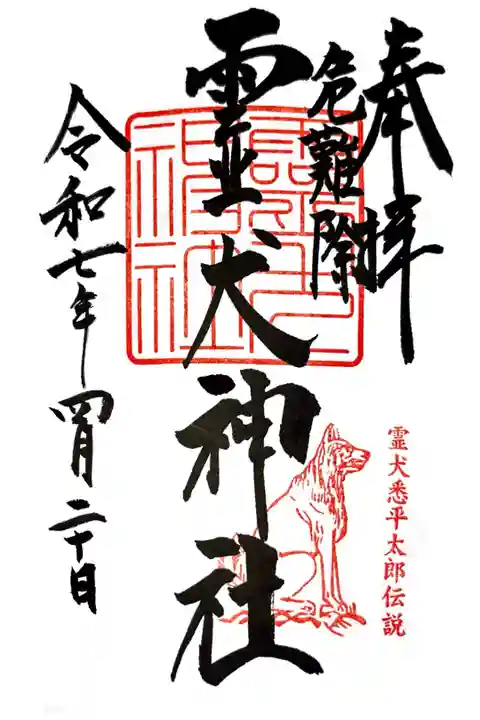 奉拝
危難除
霊犬神社
令和七年四月二十日
霊犬悉平太郎伝説